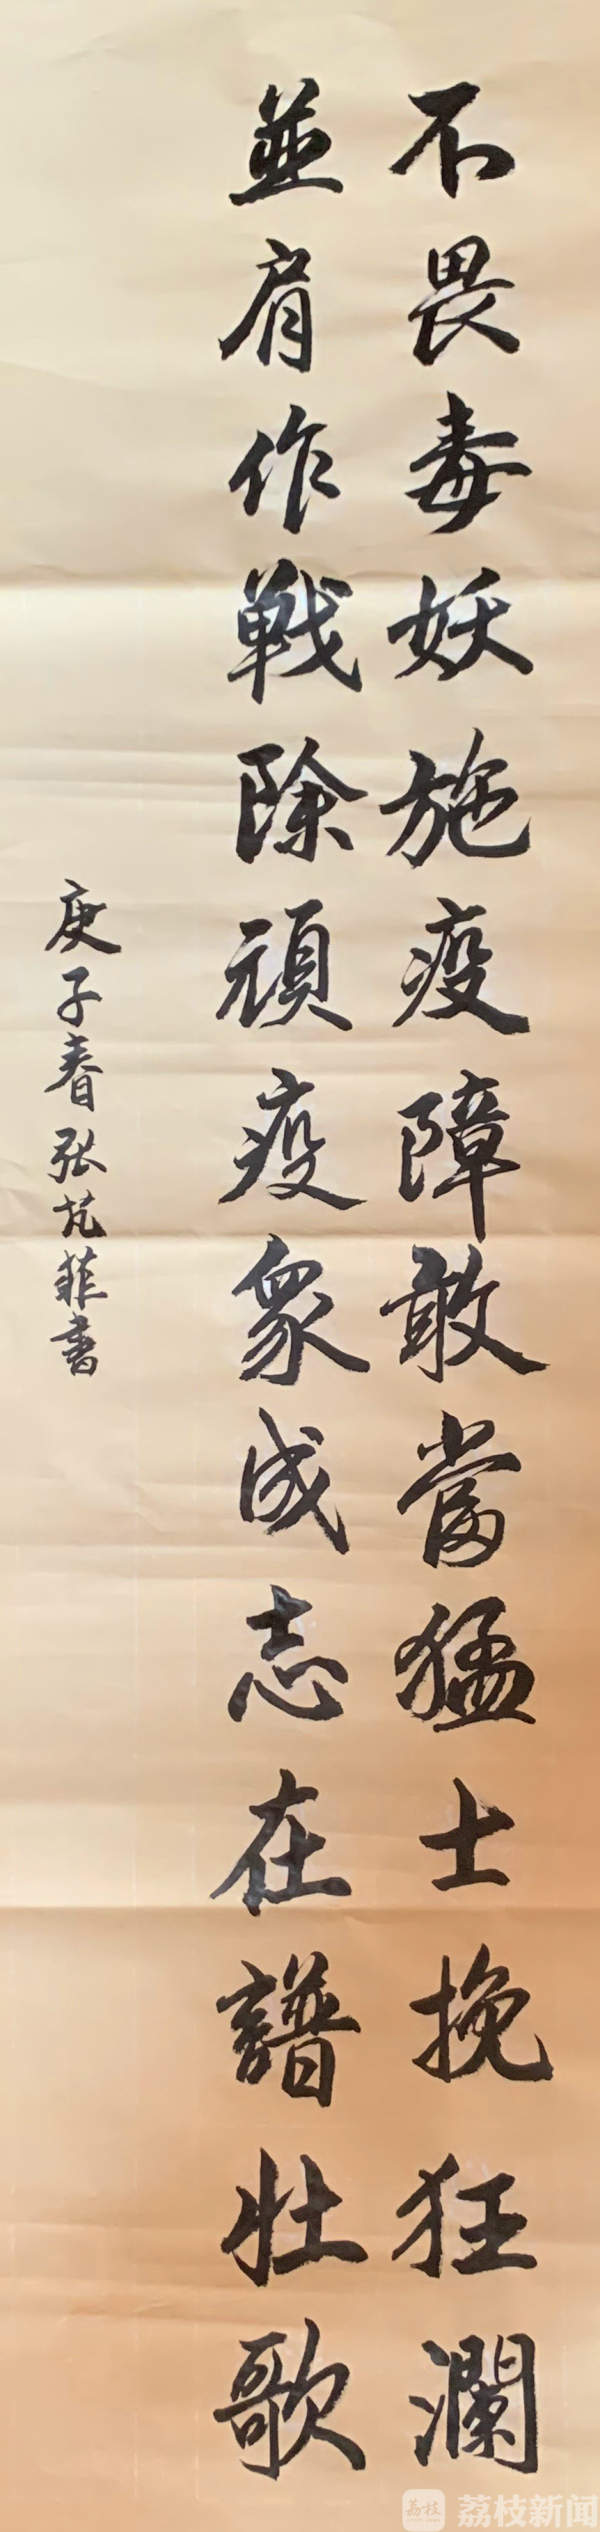 不畏毒妖施疫障敢當猛士挽狂瀾
並肩作戰除頑疫衆成志在譜壯歌
庚子春张芃菲書
荔枝新闻